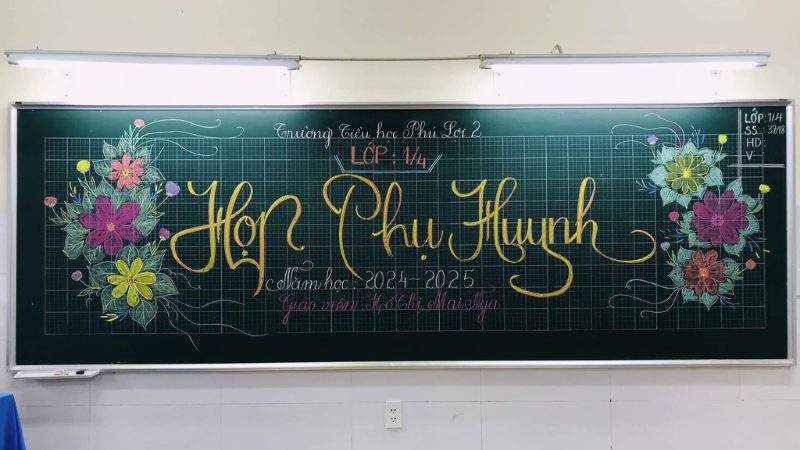 Trường Tiểu học Phú Lợi 2
LỚP : 1/4
Họp Phụ Huynh
Năm học : 2024-2025
Giáo viên : Hồ Thị Mai Nga
LỚP : 1/4
SS : 37/18
HD :
V